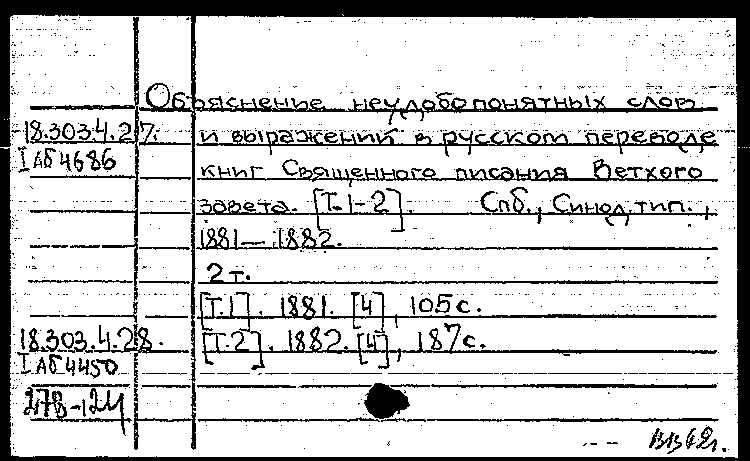 Объясненье неудобопонятных слов
18.303.4.27. и выражений в русском переводе
I АБ 4686 книг Священного писания Ветхого
завета. [Т.1-2]. Спб., Синод. тип.,
1881-1882.
2 т.
[Т.1]. 1881. [4], 105 с.
18.303.4.28. [Т.2]. 1882. [4], 187 с.
I АБ 4450
278-124